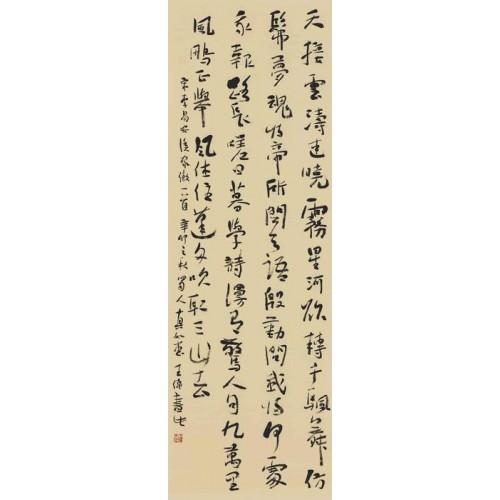 天接雲濤連曉霧星河欲轉千颿舞仿
髴夢魂歸帝所聞天語殷勤問我歸何處
我報路長嗟日暮學詩謾有驚人句九萬里
風鵬正舉風休住蓬舟吹取三山去
宋李易安漁家傲一首辛卯之秋蜀人